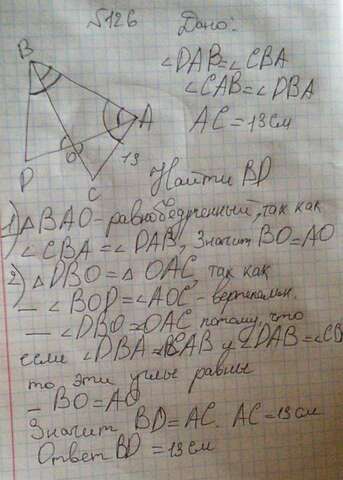 №126
Дано:
∠DAB=∠CBA
∠CAB=∠DBA
AC=13см
B
A
D
O
C
13
Найти BD
1) △BAO-равнобедренный, так как
∠CBA=∠DAB, значит BO=AO
2) △DBO=△OAC, так как
— ∠BOD=∠AOC - вертикальн.
— ∠DBO=OAC потому, что
если ∠DBA=CAB и ∠DAB=∠CB
то эти углы равны
— BO=AO
Значит BD=AC. AC=13см
Ответ BD=13см